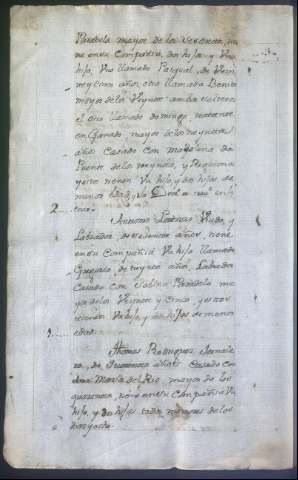 Parabela mayor de los Sesenta,
en su Compañia, dos hijos y Una
hija, Uno llamado Pasqual, de Vein
te y Cinco años, otro llamado Benito
mayor de los Veynte ambos solteros
el otro llamado Domingo,
Casado, mayor de los treynta
años Casado con Magdalena de
Puente de los treynta, y
y estos tienen Un hijo y dos hijas de
menor
2
Antonio Lorenzo Viudo, y
Labrador, de sesenta años, tiene
en su Compañia Un hijo llamado
Gregorio, de treynta años, Labrador
Casado con Sabina Parabela ma
yor de los Veynte y Cinco, y estos
tienen Un hijo y dos hijas de menor
edad
3
Thomas Rodriguez Jornale
ro, de Quarenta años, Casado con
Ana Maria del Rio, mayor de los
quarenta, tiene en su Compañia Un
hijo, y dos hijas todos menores de los
diez y ocho